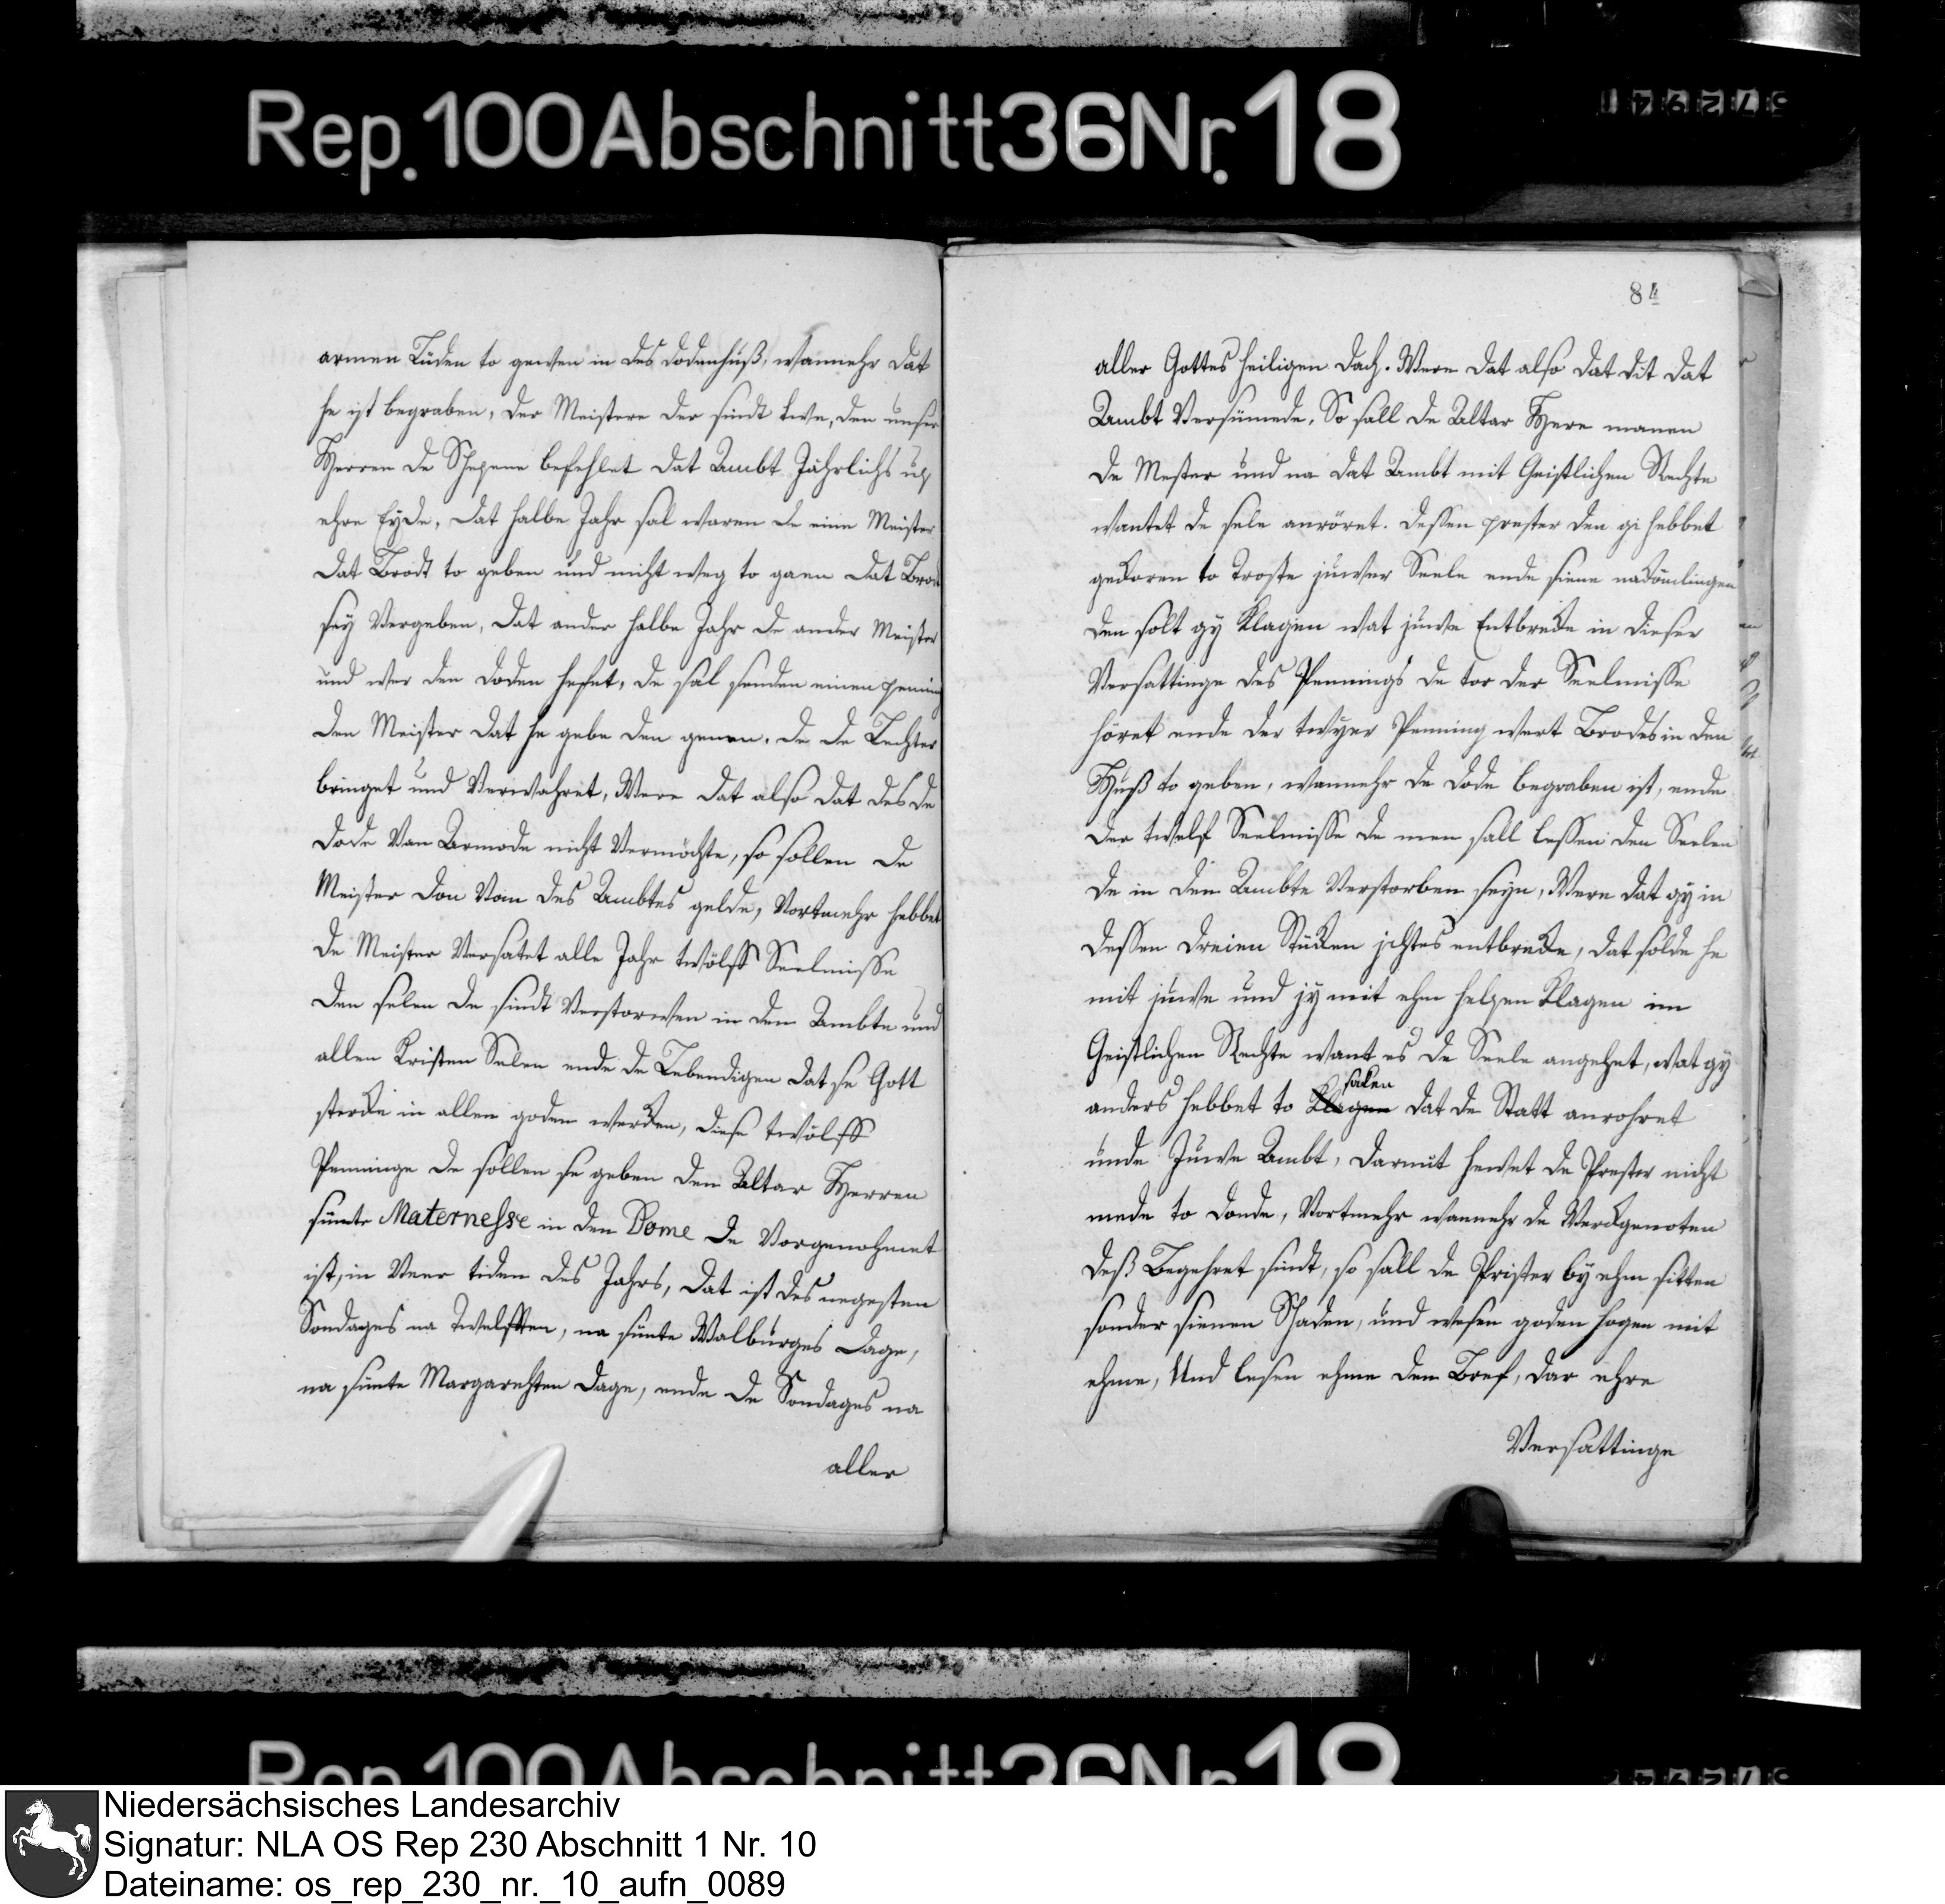 Rep. 100 Abschnitt 36 Nr. 18
armen Lüden to gewen in des dodenhuß, wannehr dat
he ist begraben, der Meistere der sindt twe, den unser
Herren de Schepene befehlet dat Ambt Jährlichs up
ehre Eyde, dat halbe Jahr sal waren de eine Meister
dat Brodt to geben und nicht weg to gaen dat Brod
sey Vergeben, dat ander halbe Jahr de ander Meister
und wer den doden hefet, de sal senden einen penning
den Meister dat he gebe den genen, de de Lechter
bringet und Verwahret, Were dat also dat des de
dode Van Armode nicht Vermöchte, so sollen de
Meister don Von des Ambtes gelde, Vortmehr hebbet
de Meister Versatet alle Jahr twölff Seelmisse
den selen de sindt Verstorwen in den Ambte und
allen Kristen Selen ende de Lebendigen dat se Gott
sterke in allen goden werken, diese twölff
Penninge de sollen se geben den Altar Herren
sünte Maternesse in den Dome de Vorgenohmet
ist, in Veer tiden des Jahrs, dat ist des negesten
Sondages na Twelfften, na sünte Walburges Dage,
na sünte Margarethen dage, ende de Sondages na
aller
84
aller Gottes heiligen dach. Were dat also dat dit dat
Ambt Versümede, So sall de Altar Here manen
de Mester und na dat Ambt mit Geistlichen Rechte
wantet de sele anröret. dessen prester den gi hebbet
gekoren to Troste juwer Seele ende siene nakömlingen
den solt gy klagen wat juwe Entbreke in dieser
Versattinge des Pennings de tor der Seelmisse
höret ende der twyer Penning wert Brodes in den
Huß to geben, wannehr de dode begraben ist, ende
der twelf Seelmisse de men sall lessen den Seelen
de in den Ambte Verstorben seyn, Were dat gy in
dessen dreien Stücken ichtes entbreke, dat solde he
mit juwe und jy mit ehm helpen klagen im
Geistlichen Rechte want es de Seele angehet, wat gy
saken
anders hebbet to klagen dat de Statt anrohret
unde Juwe Ambt, darmit hewet de Prester nicht
mede to donde, Vortmehr wannehr de Werckgenoten
deß Begehret sindt, so sall de Prister by ehm sitten
sonder sienen Schaden, und wesen goden hogen mit
ehme, Und lesen ehme den Bref, dar ehre
Versattinge
Rep. 100 Abschnitt 36 Nr. 18
Niedersächsisches Landesarchiv
Signatur: NLA OS Rep 230 Abschnitt 1 Nr. 10
Dateiname: os_rep_230_nr._10_aufn_0089